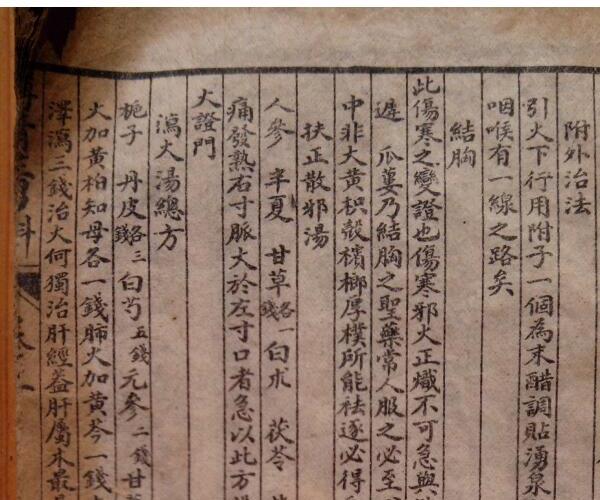 附外治法
引火下行用附子一個為末醋調貼湧泉
咽喉有一線之路矣
結胸
此傷寒之變證也傷寒邪火正熾不可急與
遲 瓜蔞乃結胸之聖藥常人服之必至
中非大黄枳殼檳榔厚樸所能祛逐必得
扶正散邪湯
人參 半夏 甘草各一錢 白朮 茯苓
痛發熱右寸脈大於左寸口者急以此方
大證門
瀉火湯總方
梔子 丹皮各三錢 白芍五錢 元參二錢 甘草
火加黄柏知母各一錢肺火加黄芩一錢
澤瀉三錢治火何獨治肝經蓋肝屬木最
男科